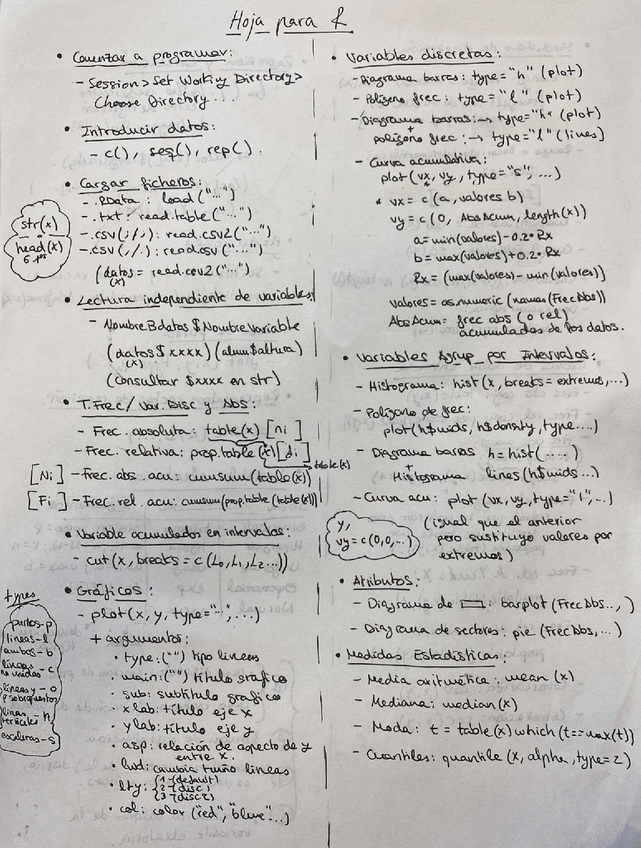 Hoja para R
• Comenzar a programar:
- Session > Set Working Directory >
Choose Directory...
• Introducir datos:
- c(), seq(), rep().
• Cargar ficheros:
- .RData: load("...")
- .txt: read.table("...")
- .csv(;/,): read.csv2("...")
- .csv(,/.): read.csv("...")
(datos = read.csv2("...")
(x)
str(x)
head(x)
6 1os
• Lectura independiente de variables:
- NombreBdatos $ NombreVariable
(datos $ xxxx) (alum$altura)
(x)
(consultar $xxxx en str)
• T.Frec / Var. Disc y Abs:
- Frec. absoluta: table(x) [ni]
- Frec. relativa: prop.table(x) [fi]
table(x)
[Ni] - Frec. abs. acu: cumsum(table(x))
[Fi] - Frec. rel. acu: cumsum(prop.table(table(x)))
• Variable acumulados en intervalos:
- cut(x, breaks = c(L0, L1, L2...))
• Gráficos:
- plot(x, y, type="-", ...)
+ argumentos:
• type: ("") tipo lineas
• main: ("") título gráfico
• sub: subtítulo grafico
• xlab: título eje x
• ylab: título eje y
• asp: relación de aspecto de y
entre x.
• lwd: cambia tmño lineas
• lty: {1-(default)
{2-(disc)
{3-(disc2)
• col: color ("red", "blue"...)
types
puntos-p
lineas-l
ambos-b
lineas - c
no unidas
lineas y - o
p sobrepuestos
lineas - h
verticales
escaleras-s
• Variables discretas:
- Diagrama barras: type="h" (plot)
- Polígono frec: type="l" (plot)
- Diagrama barras: → type="h" (plot)
+
polígono frec: → type="l" (lines)
- Curva acumulativa:
plot(vx, vy, type="s", ...)
* vx = c(a, valores b)
vy = c(0, AbsAcum, length(x))
a = min(valores) - 0.2* Rx
b = max(valores) + 0.2* Rx
Rx = (max(valores) - min(valores))
valores = as.numeric(names(FrecAbs))
AbsAcum = frec abs (o rel)
acumuladas de los datos.
• Variables Agrup por Intervalos:
- Histograma: hist(x, breaks = extremos, ...)
- Polígono de frec:
plot(h$mids, h$density, type...)
- Diagrama barras h = hist(....)
+
Histograma lines(h$mids...)
- Curva acu: plot(vx, vy, type="l", ...)
(igual que el anterior
pero sustituyo valores por
extremos)
y,
vy = c(0,0,...)
• Atributos:
- Diagrama de ▭: barplot(FrecAbs.., )
- Diagrama de sectores: pie(FrecAbs, ...)
• Medidas Estadísticas:
- Media aritmética: mean(x)
- Mediana: median(x)
- Moda: t = table(x) which(t==max(t))
- Cuantiles: quantile(x, alpha, type=2)